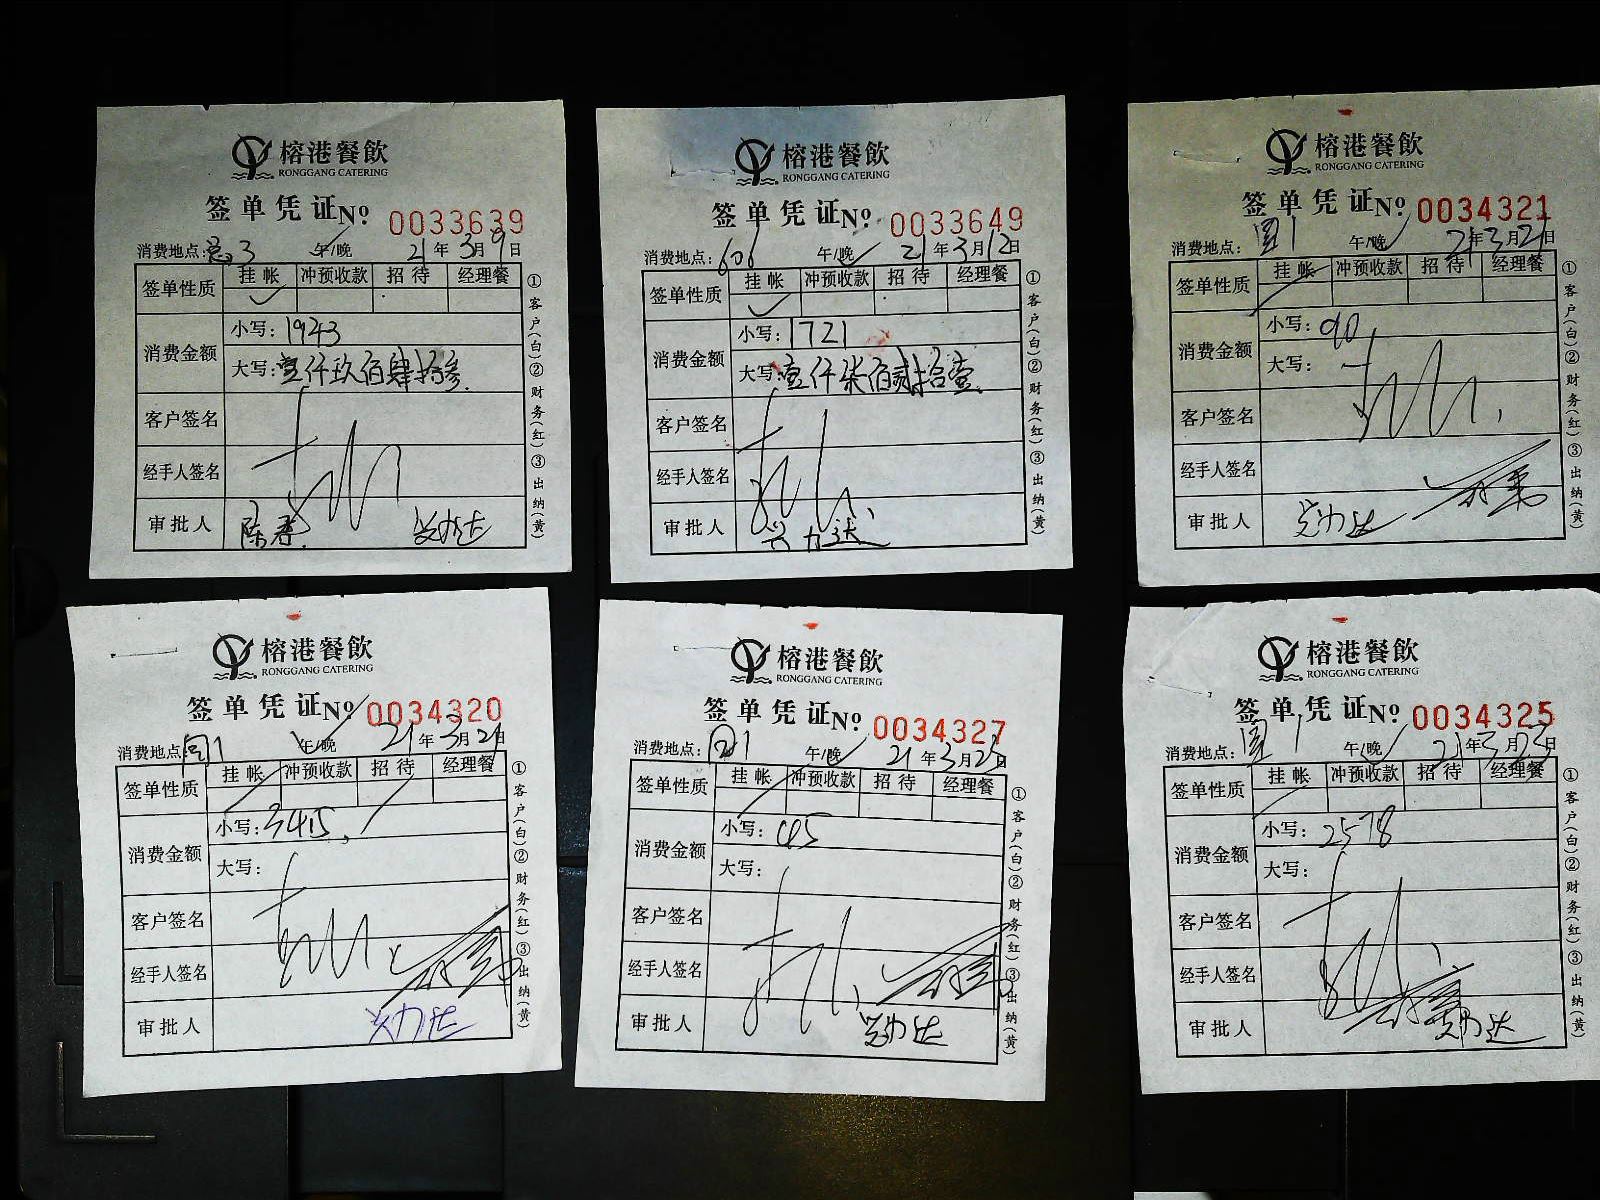 榕港餐飲
RONGGANG CATERING
签单凭证 Nº 0033639
消费地点: 3 午/晚 21年3月9日
签单性质 挂帐 冲预收款 招待 经理餐
消费金额 小写: 1943
大写: 壹仟玖佰肆拾叁
客户签名
经手人签名
审批人 陈春
①客户(白)②财务(红)③出纳(黄)
榕港餐飲
RONGGANG CATERING
签单凭证 Nº 0033649
消费地点: 606 午/晚 21年3月12日
签单性质 挂帐 冲预收款 招待 经理餐
消费金额 小写: 1721
大写: 壹仟柒佰贰拾壹
客户签名
经手人签名
审批人
①客户(白)②财务(红)③出纳(黄)
榕港餐飲
RONGGANG CATERING
签单凭证 Nº 0034321
消费地点: 午/晚 21年3月21日
签单性质 挂帐 冲预收款 招待 经理餐
消费金额 小写: 90
大写:
客户签名
经手人签名
审批人
①客户(白)②财务(红)③出纳(黄)
榕港餐飲
RONGGANG CATERING
签单凭证 Nº 0034320
消费地点: 午/晚 21年3月21日
签单性质 挂帐 冲预收款 招待 经理餐
消费金额 小写: 3415
大写:
客户签名
经手人签名
审批人
①客户(白)②财务(红)③出纳(黄)
榕港餐飲
RONGGANG CATERING
签单凭证 Nº 0034327
消费地点: 午/晚 21年3月25日
签单性质 挂帐 冲预收款 招待 经理餐
消费金额 小写:
大写:
客户签名
经手人签名
审批人
①客户(白)②财务(红)③出纳(黄)
榕港餐飲
RONGGANG CATERING
签单凭证 Nº 0034325
消费地点: 午/晚 21年3月23日
签单性质 挂帐 冲预收款 招待 经理餐
消费金额 小写: 2578
大写:
客户签名
经手人签名
审批人
①客户(白)②财务(红)③出纳(黄)